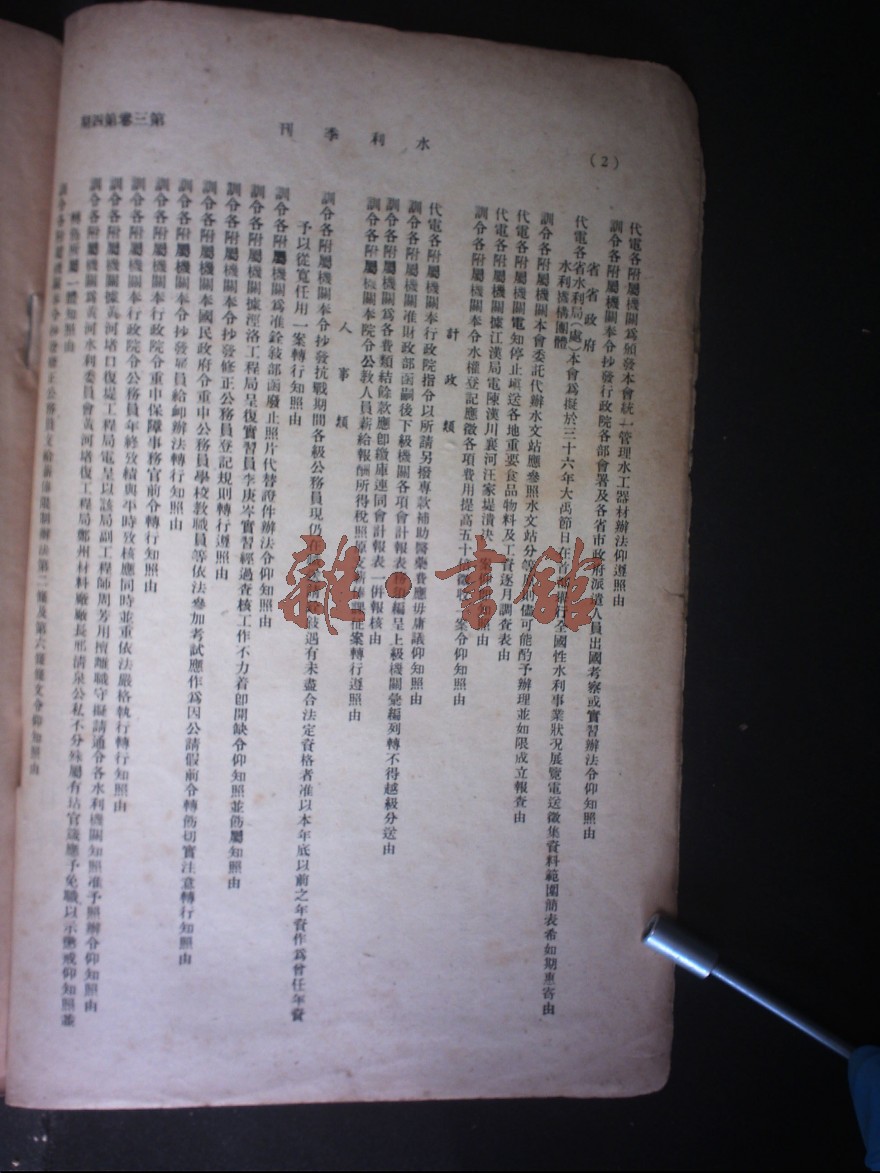 (2)
水利季刊
第三卷第四期
代電各附屬機關爲頒發本會統一管理水工器材辦法仰遵照由
訓令各附屬機關奉令抄發行政院各部會署及各省市政府派遣人員出國考察或實習辦法令仰知照由
省省政府
代電各省水利局(處)本會爲擬於三十六年大禹節日在首都舉行全國性水利事業狀況展覽電送徵集資料範圍簡表希如期惠寄由
水利機構團體
訓令各附屬機關本會委託代辦水文站應參照水文站分等 儘可能酌予辦理並如限成立報查由
代電各附屬機關電知停止塡送各地重要食品物料及工資逐月調查表由
代電各附屬機關據江漢局電陳漢川襄河汪家堤潰決 案仰 知照由
訓令各附屬機關奉令水權登記應徵各項費用提高五十 徵收 案令仰知照由
計政類
代電各附屬機關奉行政院指令以所請另撥專款補助醫藥費應毋庸議仰知照由
訓令各附屬機關准財政部函嗣後下級機關各項會計報表務 編呈上級機關彙編列轉不得越級分送由
訓令各附屬機關爲各費類結餘款應卽繳庫連同會計報表一併報核由
訓令各附屬機關奉院令公教人員薪給報酬所得稅照原 課征案轉行遵照由
人事類
訓令各附屬機關奉令抄發抗戰期間各級公務員現仍在 敍遇有未盡合法定資格者准以本年底以前之年資作爲曾任年資
予以從寬任用一案轉行知照由
訓令各附屬機關爲准銓敍部函廢止照片代替證件辦法令仰知照由
訓令各附屬機關據涇洛工程局呈復實習員李庚岑實習經過查核工作不力着卽開缺令仰知照並飭屬知照由
訓令各附屬機關奉令抄發修正公務員登記規則轉行遵照由
訓令各附屬機關奉國民政府令重申公務員學校教職員等依法參加考試應作爲因公請假前令轉飭切實注意轉行知照由
訓令各附屬機關奉令抄發雇員給卹辦法轉行知照由
訓令各附屬機關奉行政院令重申保障事務官前令轉行知照由
訓令各附屬機關奉行政院令公務員年終攷績與平時攷核應同時並重依法嚴格執行轉行知照由
訓令各附屬機關據黃河堵口復堤工程局電呈以該局副工程師周芳用擅離職守擬請通令各水利機關知照准予照辦令仰知照由
訓令各附屬機關爲黃河水利委員會黃河堵復工程局鄭州材料廠廠長邢淸泉公私不分殊屬有玷官箴應予免職以示懲戒仰知照並
轉飭所屬一體知照由
訓令各附屬機關奉令抄發修正公務員 限制辦法第二條及第六條條文令仰知照由
雜·書館